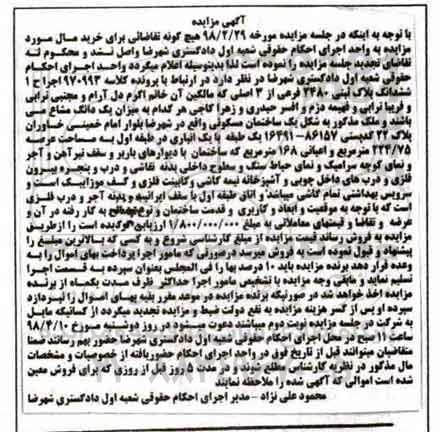 آگهی مزایده
با توجه به اینکه در جلسه مزایده مورخه ۹۸/۲/۲۹ هیچ گونه تقاضائی برای خرید مال مورد
مزایده به واحد اجرای احکام حقوقی شعبه اول دادگستری شهرضا واصل نشد و محکوم له
تقاضای تجدید جلسه مزایده را نموده است لذا بدینوسیله اعلام میگردد واحد اجرای احکام
حقوقی شعبه اول دادگستری شهرضا در نظر دارد در ارتباط با پرونده کلاسه ۹۷۰۹۹۳ اجرا ح ۱
ششدانگ پلاک ثبتی ۳۴۸۰ فرعی از ۳ اصلی که مالکین آن خانم اکرم دل آرام و مجتبی ترابی
و فریبا ترابی و فهیمه دزم و افسر حیدری و زهرا گاجی هر کدام به میزان یک دانگ مشاع می
باشند و ملک مذکور به شکل یک ساختمان مسکونی واقع در شهرضا بلوار امام خمینی خاوران
پلاک ۲۲ کدپستی ۸۶۱۵۷-۱۶۴۹۱ یک طبقه با یک انباری در طبقه اول به مساحت عرصه
۲۲۴/۷۵ مترمربع و اعیانی ۱۶۸ مترمربع که ساختمان با دیوارهای باربر و سقف تیرآهن و آجر
و نمای کوچه سرامیک و نمای حیاط سنگ و سطوح داخلی بدنه نقاشی و درب و پنجره بیرون
فلزی و درب های داخل چوبی و آشپزخانه نیمه کاشی و کابینت فلزی و کف موزاییک است و
سرویس بهداشتی تمام کاشی میباشد و اتاق طبقه اول با سقف ایرانیت و بدنه آجر و درب فلزی
است که با توجه به موقعیت و ابعاد و کاربری و قدمت ساختمان و نوع به کار رفته در آن و
عرضه و تقاضا و قیمتهای معاملاتی به مبلغ ۱/۸۰۰/۰۰۰/۰۰۰ ارزیابی گردیده است را ازطریق
مزایده به فروش رساند قیمت مزایده از مبلغ کارشناسی شروع و به کسی که بالاترین مبلغ را
پیشنهاد و قبول نموده است به فروش میرسد درصورتی که مامور اجرا پرداخت بهای اموال را به
وعده قرار دهد برنده مزایده باید ۱۰ درصد بها را فی المجلس بعنوان سپرده به قسمت اجرا
تسلیم نماید و مابقی وجه مزایده با تشخیص مامور اجرا حداکثر ظرف مدت یکماه از برنده
مزایده اخذ خواهد شد در صورتیکه برنده مزایده در موعد مقرر بقیه بهای اموال را نپردازد
سپرده او پس از کسر هزینه مزایده به نفع دولت ضبط و مزایده تجدید میگردد از کسانیکه مایل
به شرکت در جلسه مزایده نوبت دوم میباشند دعوت میشود در روز دوشنبه مورخ ۹۸/۴/۱۰
ساعت ۱۱ صبح در محل اجرای احکام حقوقی شعبه اول دادگستری شهرضا حضور بهم رسانند ضمنا
متقاضیان میتوانند قبل از تاریخ فوق در واحد اجرای احکام حضوریافته از خصوصیات و مشخصات
مال مذکور در نظریه کارشناسی مطلع شوند و در مدت ۵ روز قبل از روزی که برای فروش معین
شده است اموالی که آگهی شده را ملاحظه نمایند
محمود علی نژاد – مدیر اجرای احکام حقوقی شعبه اول دادگستری شهرضا